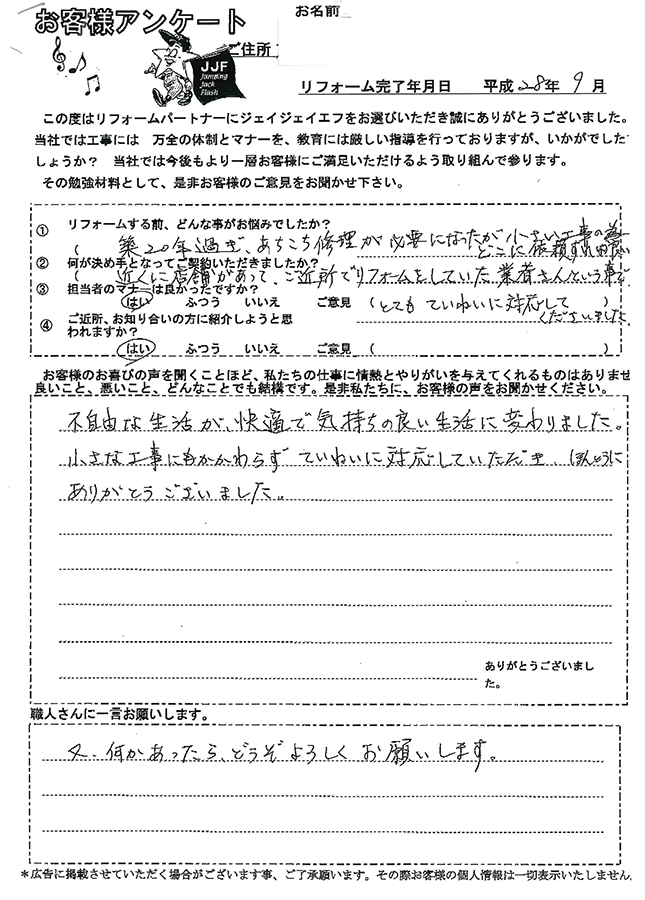 お客様アンケート
お名前
ご住所
JJF
Jumping
Jack
Flash
リフォーム完了年月日 平成 28年 9 月
この度はリフォームパートナーにジェイジェイエフをお選びいただき誠にありがとうございました。
当社では工事には 万全の体制とマナーを、教育には厳しい指導を行っておりますが、いかがでした
しょうか? 当社では今後もより一層お客様にご満足いただけるよう取り組んで参ります。
その勉強材料として、是非お客様のご意見をお聞かせ下さい。
① リフォームする前、どんな事がお悩みでしたか?
( 築20年過ぎ、あちこち修理が必要になったが小さい工事の為
どこに依頼すれば
② 何が決め手となってご契約いただきましたか?
( 近くに店舗があって、ご近所でリフォームをしていた業者さんという事で
③ 担当者のマナーは良かったですか?
はい ふつう いいえ ご意見 (とても ていねいに対応して )
くださいました
④ ご近所、お知り合いの方に紹介しようと思
われますか?
はい ふつう いいえ ご意見 ( )
お客様のお喜びの声を聞くことほど、私たちの仕事に情熱とやりがいを与えてくれるものはありませ
良いこと、悪いこと、どんなことでも結構です。是非私たちに、お客様の声をお聞かせください。
不自由な生活が、快適で気持ちの良い生活に変わりました。
小さな工事にもかかわらず ていねいに対応していただき、ほんとうに
ありがとうございました。
ありがとうございまし
た。
職人さんに一言お願いします。
又、何かあったら、どうぞよろしく お願いします。
*広告に掲載させていただく場合がございます事、ご了承願います。その際お客様の個人情報は一切表示いたしません